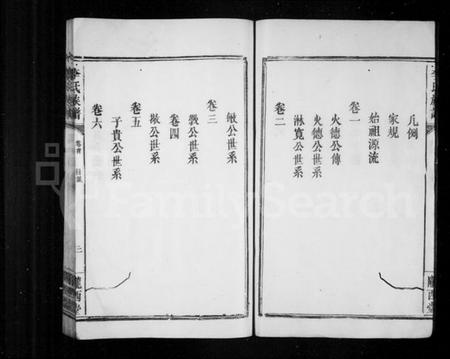 凡例
家規
始祖源流
卷一
火德公傳
火德公世系
淋寬公世系
卷二
敏公世系
卷三
敦公世系
卷四
敬公世系
卷五
子貴公世系
卷六
李氏族譜
卷首
目錄
二
隴西堂
FamilySearch